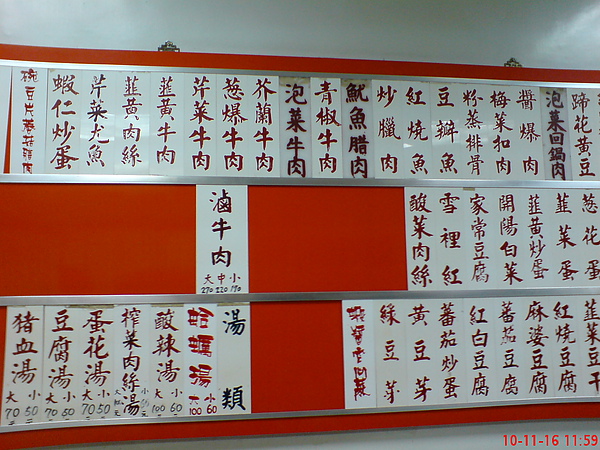 蹄花黄豆
泡菜回鍋肉
醬爆肉
梅菜扣肉
粉蒸排骨
豆瓣魚
紅燒魚
炒臘肉
魷魚腊肉
青椒牛肉
泡菜牛肉
芥蘭牛肉
葱爆牛肉
芹菜牛肉
韮黄牛肉
韮黄肉絲
芹菜尤魚
蝦仁炒蛋
葱花蛋
韮菜蛋
韮黄炒蛋
開陽白菜
家常豆腐
雪裡紅
酸菜肉絲
滷牛肉
大中小
270 220 170
韮菜豆干
紅燒豆腐
麻婆豆腐
蕃茄豆腐
紅白豆腐
蕃茄炒蛋
黄豆芽
綠豆芽
湯類
蛤蠣湯
大小
100 60
酸辣湯
大小
100 60
榨菜肉絲湯
蛋花湯
大小
70 50
豆腐湯
大小
70 50
豬血湯
大小
70 50
10-11-16 11:59